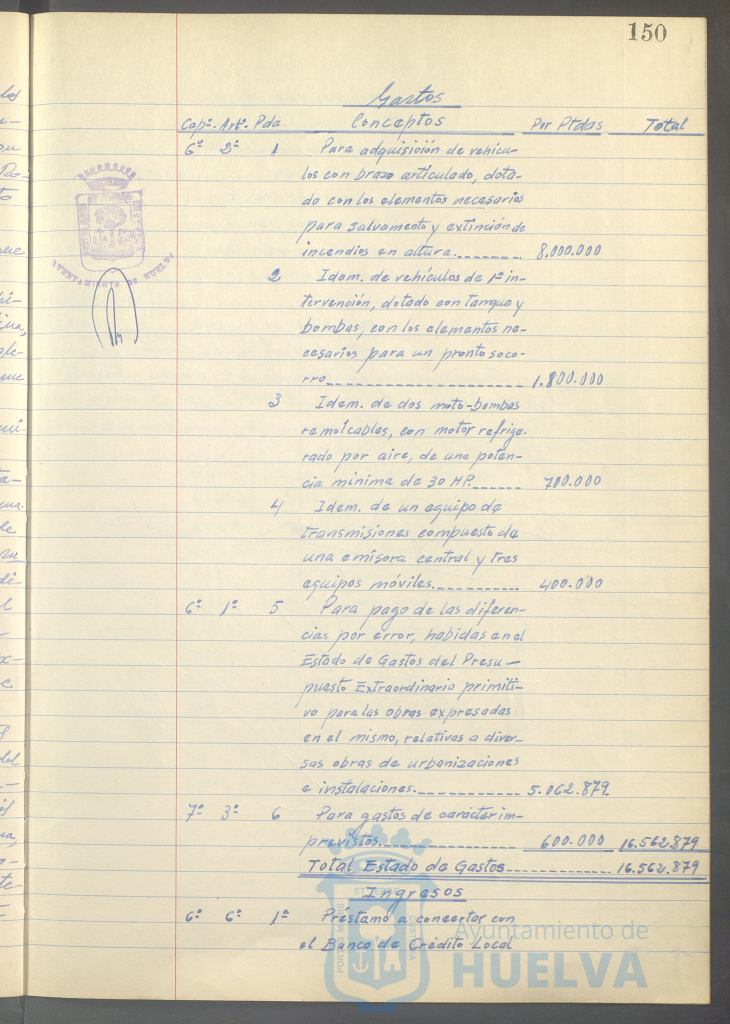 150
Gastos
Capº. Artº. Pda. Conceptos Por Ptdas Total
6º 2º 1 Para adquisición de vehícu-
los con brazo articulado, dota-
do con los elementos necesarios
para salvamento y extinción de
incendios en altura. 8.000.000
2 Idem. de vehículos de 1ª in-
tervención, dotado con tanque y
bombas, con los elementos ne-
cesarios para un pronto soco-
rro 1.800.000
3 Idem. de dos moto-bombas
remolcables, con motor refrige-
rado por aire, de una poten-
cia mínima de 30 HP. 700.000
4 Idem. de un equipo de
transmisiones compuesto de
una emisora central y tres
equipos móviles. 400.000
6º 1º 5 Para pago de las diferen-
cias por error, habidas en el
Estado de Gastos del Presu-
puesto Extraordinario primiti-
vo para las obras expresadas
en el mismo, relativas a diver-
sas obras de urbanizaciones
e instalaciones. 5.062.879
7º 3º 6 Para gastos de carácter im-
previstos. 600.000 16.562.879
Total Estado de Gastos 16.562.879
Ingresos
6º 6º 1º Préstamo a concertar con
el Banco de Crédito Local
AYUNTAMIENTO DE HUELVA
Ayuntamiento de
HUELVA